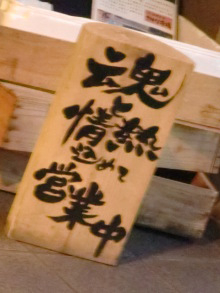 魂と
情熱
込めて
営業中